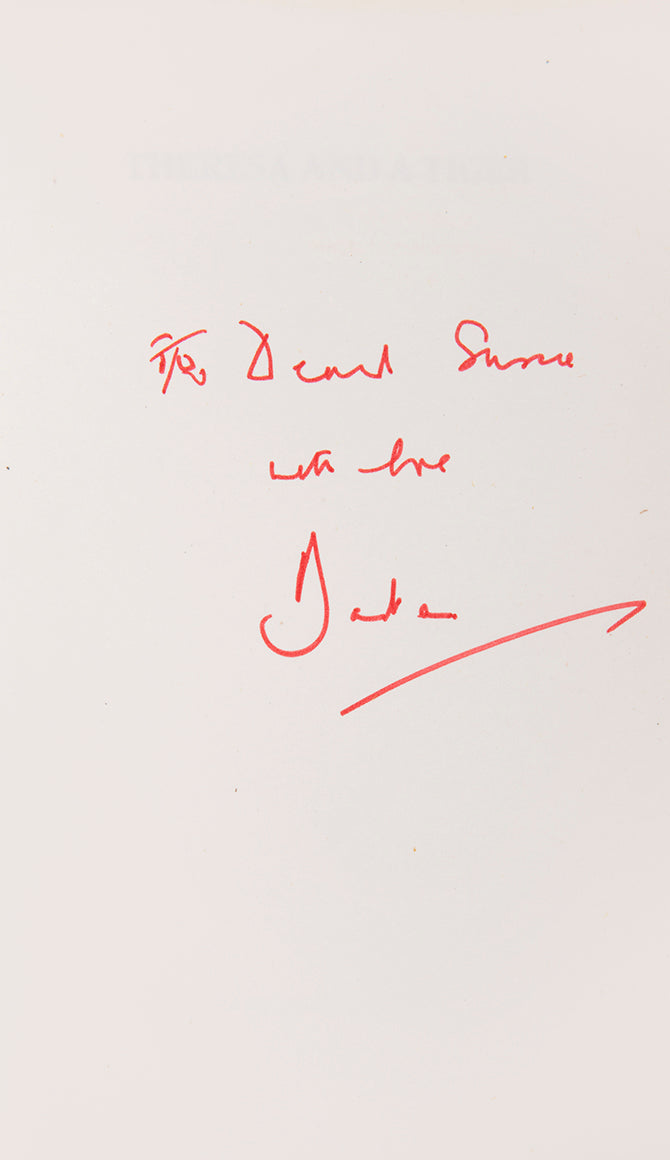 THERESA AND A TIGER
To Dearest Susie
with love